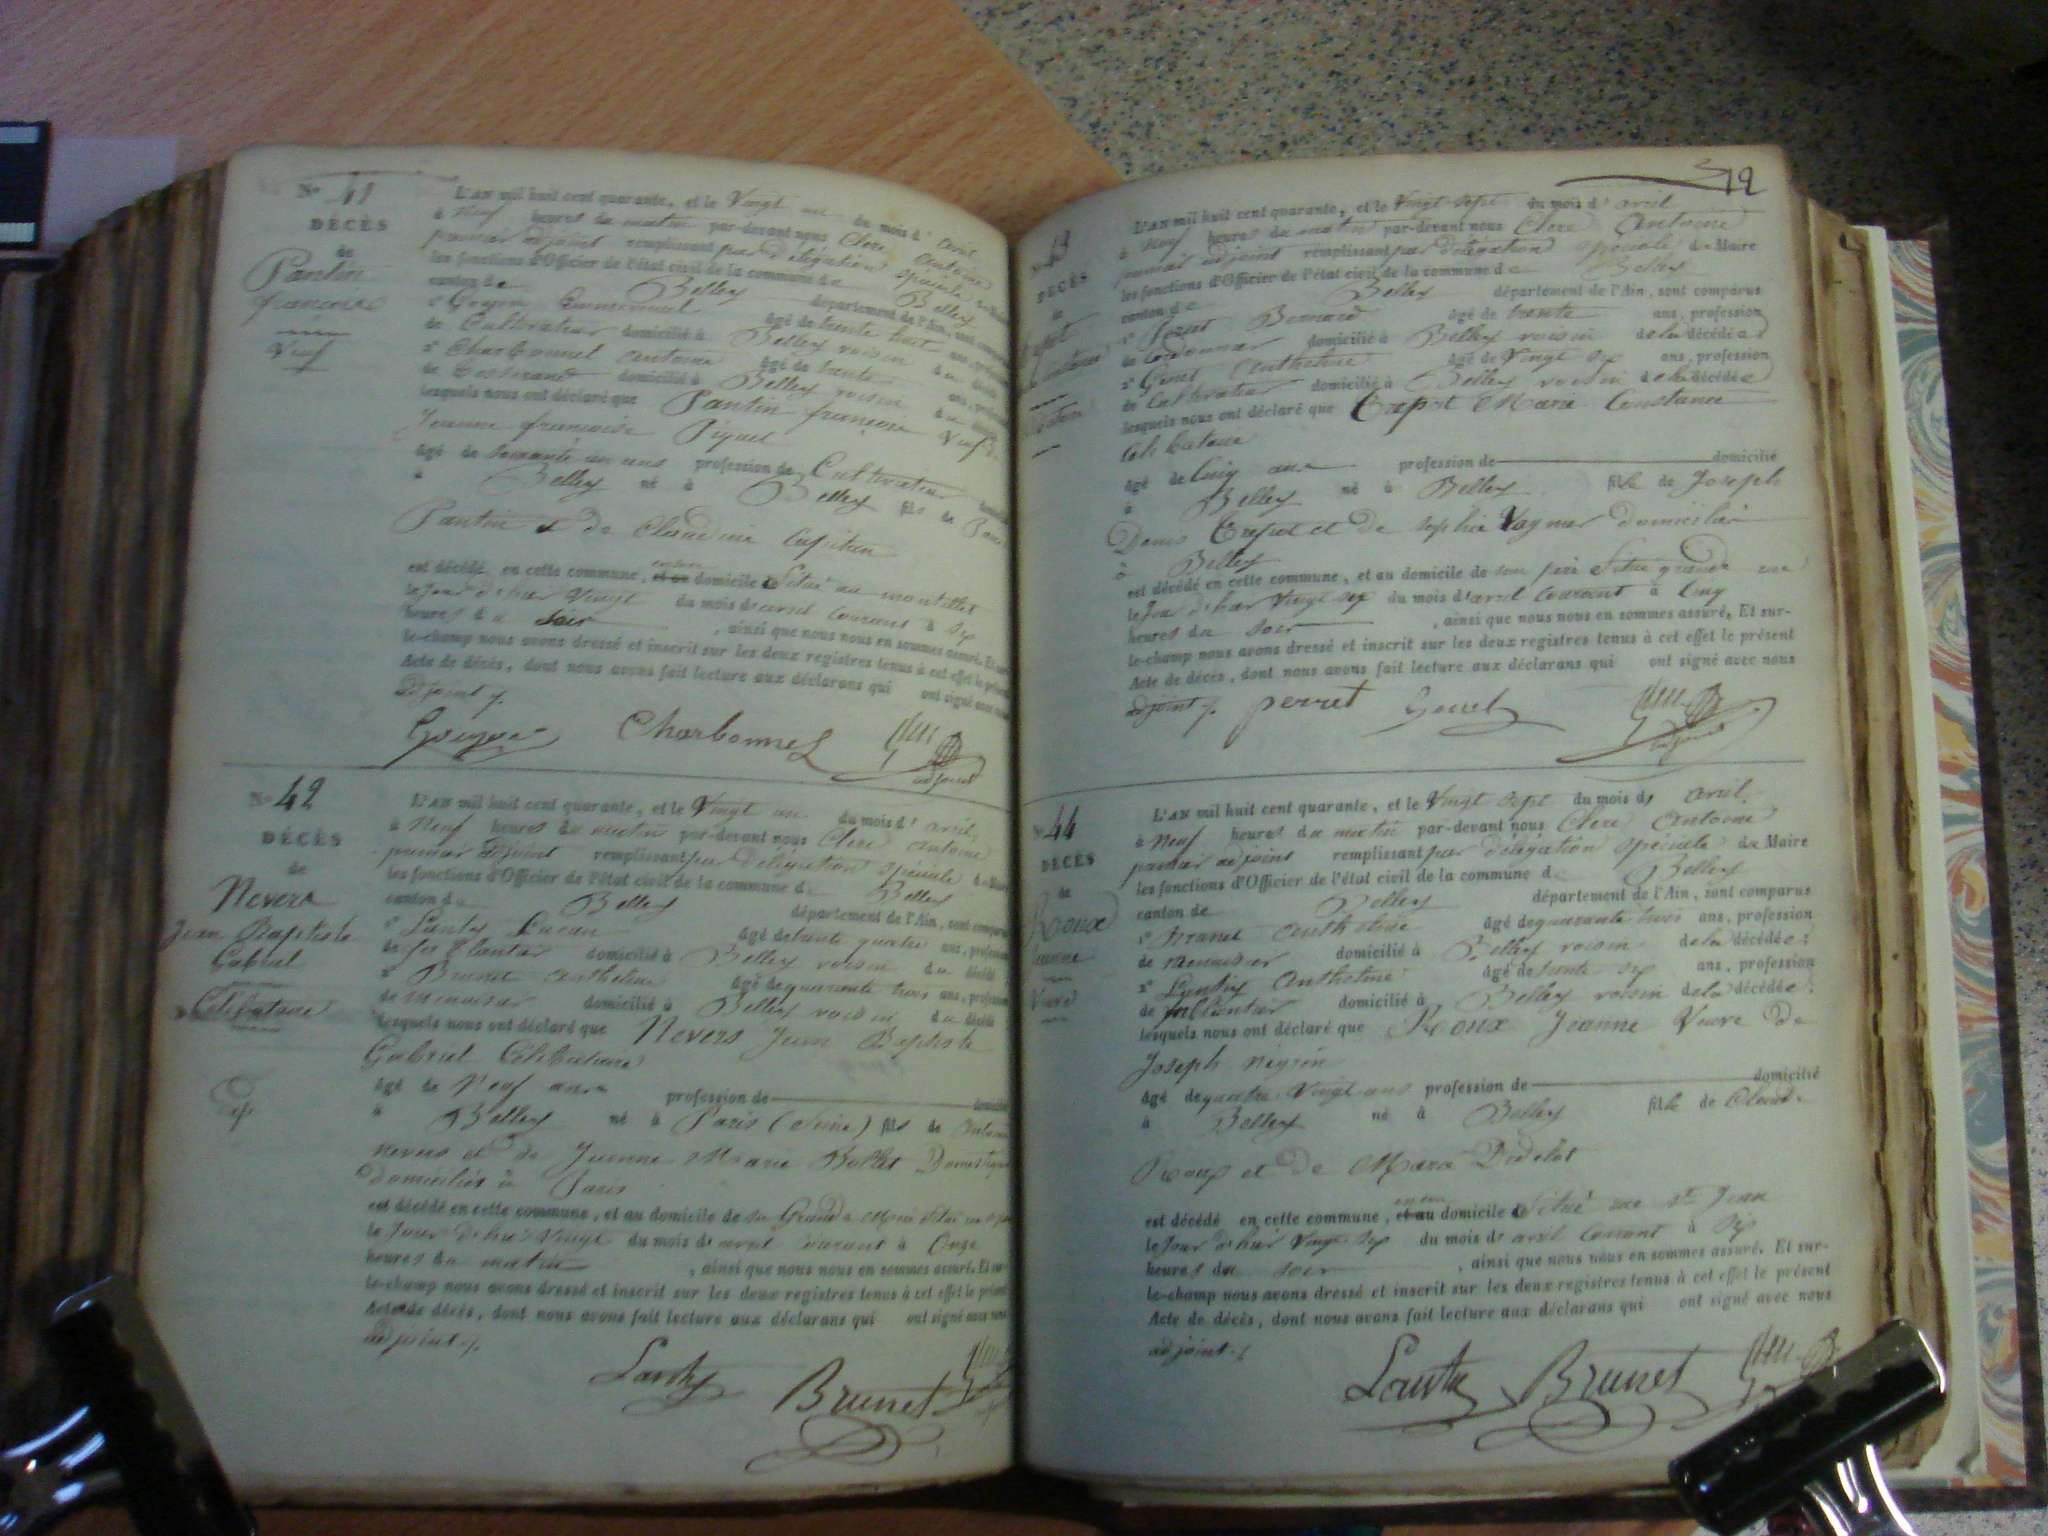 N° 41
DÉCÈS
de
Pantin
françois
Veuf
L'AN mil huit cent quarante, et le Vingt un du mois d'avril
à Neuf heures du matin par-devant nous Clerc Antoine
premier adjoint remplissant par délégation spéciale du Maire
les fonctions d'Officier de l'état civil de la commune de Belley
canton de Belley département de l'Ain, sont comparus
1° Goujon Emmanuel âgé de trente huit ans, profession
de Cultivateur domicilié à Belley voisin du décédé
2° Charbonnel Antoine âgé de trente ans, profession
de domicilié à Belley voisin du décédé
lesquels nous ont déclaré que Pantin françois Veuf de
Jeanne françoise
âgé de soixante un ans profession de Cultivateur domicilié
à Belley né à Belley fils de
Pantin et de Claudine Capitan
est décédé en cette commune, et au domicile Situé au montillet
le Jour d'hier Vingt du mois d'avril courant à six
heures du soir , ainsi que nous nous en sommes assuré. Et sur-
le-champ nous avons dressé et inscrit sur les deux registres tenus à cet effet le présent
Acte de décès, dont nous avons fait lecture aux déclarans qui ont signé avec nous
adjoint
Charbonnel
adjoint
N° 42
DÉCÈS
de
Nevers
Jean Baptiste
Gabriel
Célibataire
L'AN mil huit cent quarante, et le Vingt un du mois d'avril
à Neuf heures du matin par-devant nous Clerc Antoine
premier adjoint remplissant par délégation spéciale du Maire
les fonctions d'Officier de l'état civil de la commune d Belley
canton de Belley département de l'Ain, sont comparus
1° Lanty âgé de trente quatre ans, profession
de ferblantier domicilié à Belley voisin du décédé
2° Brunet Anthelme âgé de quarante trois ans, profession
de menuisier domicilié à Belley voisin du décédé
lesquels nous ont déclaré que Nevers Jean Baptiste
Gabriel Célibataire
âgé de Neuf ans profession de domicilié
à Belley né à Paris (Seine) fils de Antoine
Nevers et de Jeanne Marie Domestiques
domiciliés à Paris
est décédé en cette commune, et au domicile de sa Grande Mère Situé
le Jour d'hier Vingt du mois d'avril courant à Onze
heures du matin , ainsi que nous nous en sommes assuré. Et sur-
le-champ nous avons dressé et inscrit sur les deux registres tenus à cet effet le présent
Acte de décès, dont nous avons fait lecture aux déclarans qui ont signé avec nous
adjoint
Lanty Brunet
12
43
DÉCÈS
de
L'AN mil huit cent quarante, et le Vingt sept du mois d'avril
à Neuf heures du matin par-devant nous Clerc Antoine
premier adjoint remplissant par délégation spéciale du Maire
les fonctions d'Officier de l'état civil de la commune de Belley
canton de Belley département de l'Ain, sont comparus
1° Bernard âgé de trente ans, profession
de cordonnier domicilié à Belley voisin de la décédée
2° Genet Anthelme âgé de Vingt six ans, profession
de Cultivateur domicilié à Belley voisin de la décédée
lesquels nous ont déclaré que Marie Constance
Célibataire
âgé de Cinq ans profession de domicilié
à Belley né à Belley fille de Joseph
Denis et de Sophie domiciliés
à Belley
est décédé en cette commune, et au domicile de son père Situé grande rue
le Jour d'hier Vingt six du mois d'avril courant à Cinq
heures du soir , ainsi que nous nous en sommes assuré. Et sur-
le-champ nous avons dressé et inscrit sur les deux registres tenus à cet effet le présent
Acte de décès, dont nous avons fait lecture aux déclarans qui ont signé avec nous
adjoint perret Genet
N° 44
DÉCÈS
de
Roux
Jeanne
Veuve
L'AN mil huit cent quarante, et le Vingt sept du mois d avril
à Neuf heures du matin par-devant nous Clerc Antoine
premier adjoint remplissant par délégation spéciale du Maire
les fonctions d'Officier de l'état civil de la commune d Belley
canton de Belley département de l'Ain, sont comparus
1° Brunet Anthelme âgé de quarante trois ans, profession
de menuisier domicilié à Belley voisin de la décédée
2° Lanty Anthelme âgé de trente six ans, profession
de ferblantier domicilié à Belley voisin de la décédée
lesquels nous ont déclaré que Roux Jeanne Veuve de
Joseph
âgé de quatre Vingt ans profession de domicilié
à Belley né à Belley fille de Claude
Roux et de Marie Didelot
est décédé en cette commune, et au domicile Situé rue St Jean
le Jour d'hier Vingt six du mois d avril courant à six
heures du soir , ainsi que nous nous en sommes assuré. Et sur-
le-champ nous avons dressé et inscrit sur les deux registres tenus à cet effet le présent
Acte de décès, dont nous avons fait lecture aux déclarans qui ont signé avec nous
adjoint
Lanty Brunet